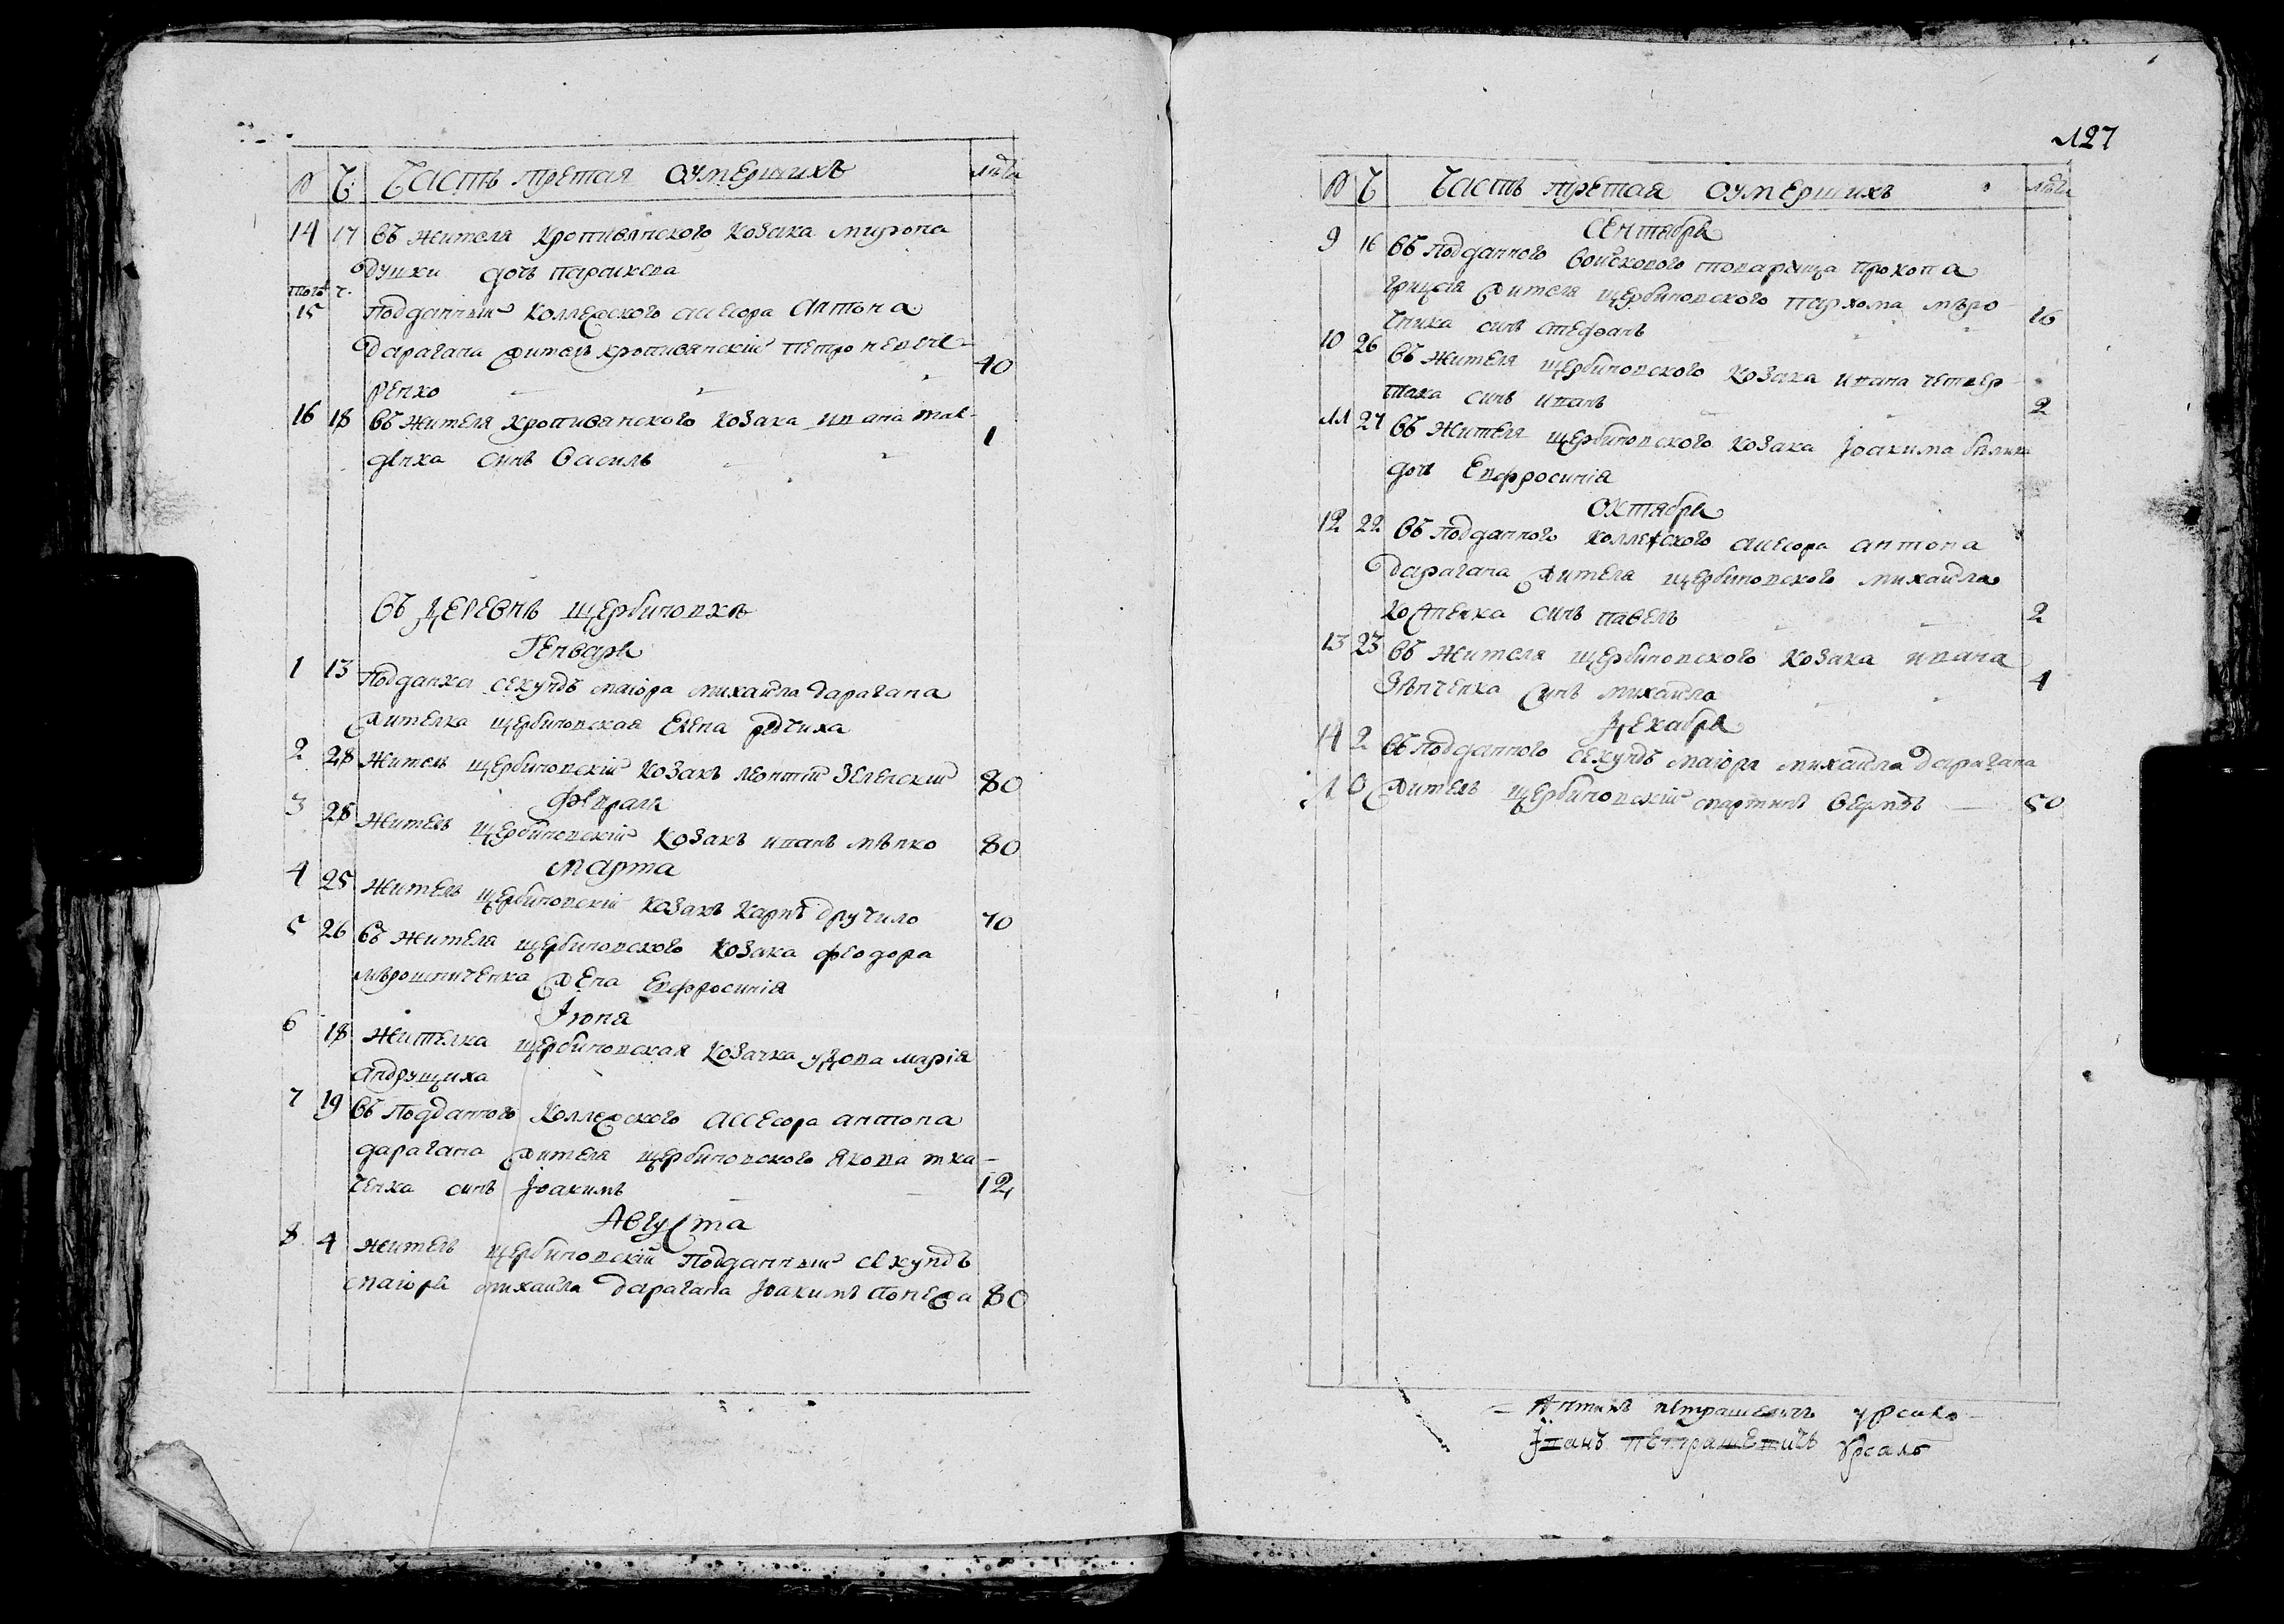 Часть третая оумершихъ лѣта
14 17 въ жителя кропивянского козака мирона
дунки дочь параскева
тогож ч.
15 Подданный коллежского асесора антона
дарагана житель кропивянскій петро
ренко 40
16 18 въ жителя кропивянского козака ивана
денка синъ василь 1
въ деревнѣ щербиновкѣ
Генваря
1 13 Подданка секундъ маіора михайла дарагана
жителка щербиновская Елена редчиха
2 28 житель щербиновскій козакъ леонтій зеленскій 80
февраля
3 28 житель щербиновскій козакъ иванъ 80
Марта
4 25 житель щербиновскій козакъ карпъ дручило 70
5 26 въ жителя щербиновского козака феодора
мѣрошниченка жена Евфросинія
Іюня
6 18 жителка щербиновская козачка удова марія
андрущиха
7 19 въ Подданного коллежского ассесора антона
дарагана жителя щербиновского якова тка-
ченка синъ Іоакимъ 12
Августа
8 4 житель щербиновскій Подданный секундъ
маіора михайла дарагана Іоакимъ 80
127
Часть третая оумершихъ лѣта
Сентября
9 16 въ Подданного войскового товарища прокопа
грицая жителя щербиновского пархома мѣро-
шника синъ стефанъ 16
10 26 въ жителя щербиновского козака ивана четвер-
така синъ иванъ 2
11 27 въ жителя щербиновского козака Іоакима
дочь Евфросинія
октября
12 22 въ Подданного коллежского асесора антона
дарагана жителя щербиновского михайла
костенка синъ павелъ 2
13 23 въ жителя щербиновского козака ивана
зѣнченка синъ михайло 4
Декабря
14 2 въ Подданного секундъ маіора михайла дарагана
житель щербиновскій мартинъ 50
петрашевичъ
Іванъ петрашевичъ